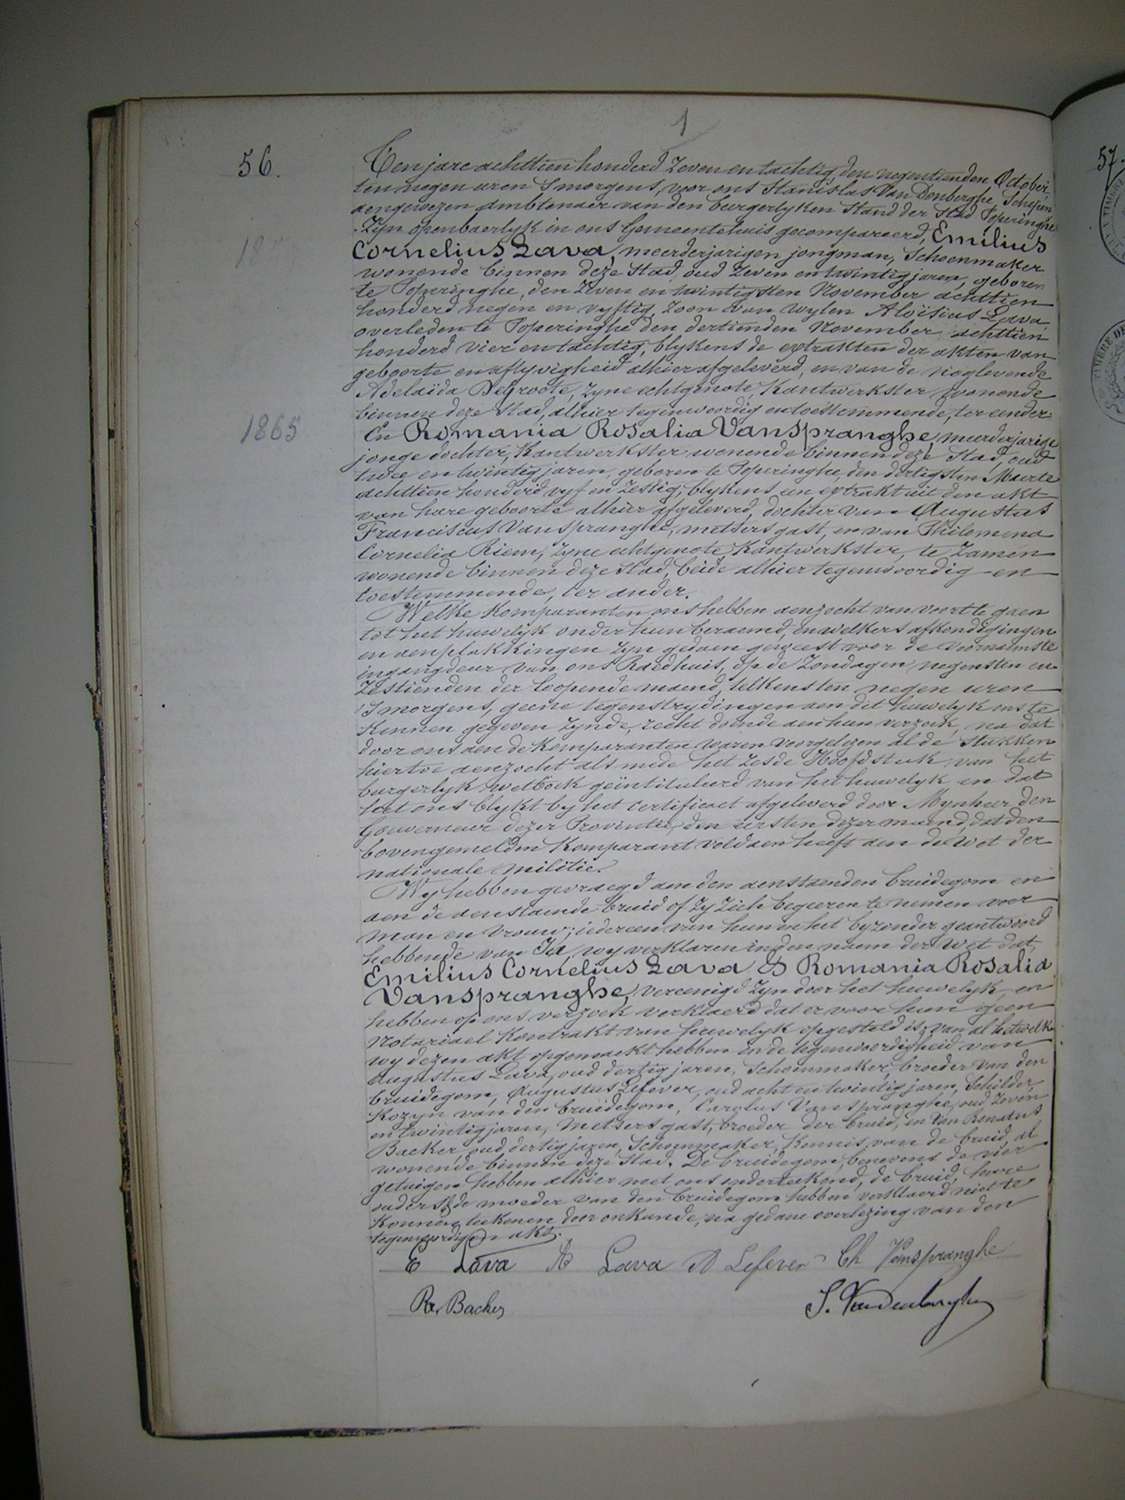 1
56.
Ten jare achttien honderd Zeven en tachtig, den negentienden October
ten negen uren Smorgens, voor ons Stanislas Van Denberghe, Schepen
aengewezen Ambtenaer van den burgerlyken Stand der Stad Poperinghe
Zyn openbaerlyk in ons Gemeentehuis gecompareerd, Emilius
Cornelius Lava, meerderjarigen jongman, Schoenmaker
wonende binnen deze Stad, oud Zeven en twintig jaren, geboren
te Poperinghe, den Zeven en twintigsten November achttien
honderd negen en vyftig, Zoon van wylen Aloïsius Lava
overleden te Poperinghe den dertienden November achttien
honderd vier en tachtig, blykens de extrakten der akten van
geboorte en aflyvigheid alhier afgeleverd, en van de noglevende
Adelaïda DeGroote, Zyne echtgenote, Kantwerkster, wonende
binnen deze Stad, alhier tegenwoordig en toestemmende, ter eender
1865
En Romania Rosalia Vanspranghe, meerderjarige
jonge dochter, Kantwerkster wonende binnen deze Stad, oud
twee en twintig jaren, geboren te Poperinghe, den dertigsten Maerte
achttien honderd vyf en Zestig, blykens een extrakt uit den akt
van hare geboorte alhier afgeleverd, dochter van Augustus
Franciscus Vanspranghe, metsers gast, en van Philomena
Cornelia Riem, Zyne echtgenote Kantwerkster, te Zamen
wonende binnen deze Stad, beide alhier tegenwoordig en
toestemmende, ter ander.
Welke Komparanten ons hebben aenzocht van voort te gaen
tot het huwelyk onder hun beraemd, en welkers afkondigingen
en aenplakkingen Zyn gedaen geweest voor de voornaemste
ingangdeur van ons Raedhuis, op de Zondagen, negensten en
Zestienden der loopende maend, telkens ten negen uren
Smorgens, geene tegenstrydingen aen dit huwelyk ons te
Kennen gegeven Zynde, recht doende aen hun verzoek, na dat
door ons aen de Komparanten waren voorgelezen al de Stukken
hiertoe aenzocht als mede het Zesde Hoofdstuk van het
burgerlyk Wetboek geïntituleerd van het huwelyk en dat
het ons blykt by het certificaet afgeleverd door Mynheer den
Gouverneur dezer Provintie, den eersten dezer maend, dat den
bovengemelden Komparant voldaen heeft aen de wet der
nationale militie.
Wy hebben gevraegd aen den aenstaenden bruidegom en
aen de aenstaende bruid of Zy Zich begeeren te nemen voor
man en vrouw; iedereen van hun in het byzonder geantwoord
hebbende van Ja, wy verklaren in den naem der Wet dat
Emilius Cornelius Lava & Romania Rosalia
Vanspranghe, vereenigd Zyn door het huwelyk, en
hebben op ons verzoek verklaerd dat er voor hun geen
Notariael Kontrakt van huwelyk opgesteld is, van al het welk
wy dezen akt opgemaekt hebben in de tegenwoordigheid van
Augustus Lava, oud dertig jaren, Schoenmaker, broeder van den
bruidegom, Augustus Lefever, oud acht en twintig jaren, Schilder,
Kozyn van den bruidegom, Carolus Vanspranghe, oud Zeven
en twintig jaren, Metsers gast, broeder der bruid, en Van Renatus
Backer, oud dertig jaren, Schoenmaker, Kennis van de bruid, al
wonende binnen deze Stad. De bruidegom, benevens de vier
getuigen hebben alhier met ons onderteekend, de bruid, hare
ouders & de moeder van den bruidegom hebben verklaerd niet te
Konnen teekenen door onkunde, na gedane overlezing van den
tegenwoordigen akt.
E Lava A Lava A Lefever Ch Vanspranghe
Re, Backer S. Vandenberghe
57.